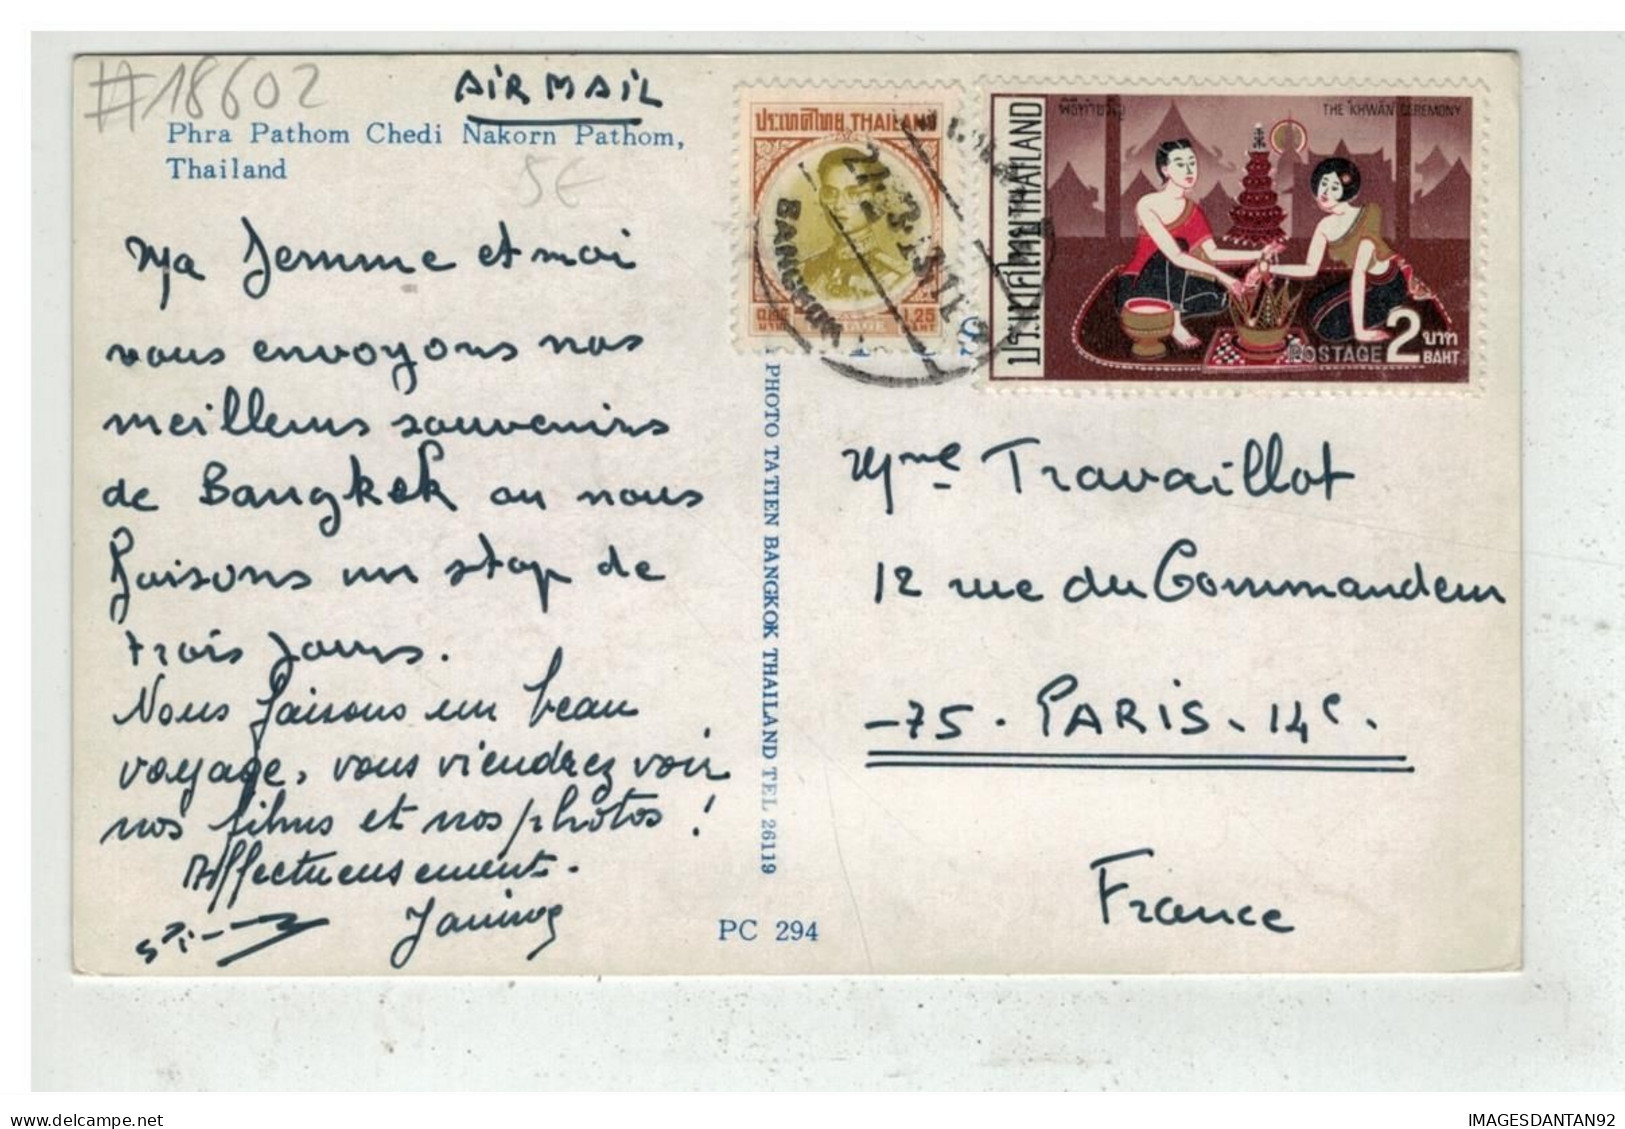 #18602
AIR MAIL
Phra Pathom Chedi Nakorn Pathom,
Thailand
5€
Ma femme et moi
vous envoyons nos
meilleurs souvenirs
de Bangkok ou nous
faisons un stop de
trois jours.
Nous faisons un beau
voyage, vous viendrez voir
nos films et nos photos !
Affectueusement.
Janine
PC 294
PHOTO TATIEN BANGKOK THAILAND TEL 26119
ประเทศไทย THAILAND
BANGKOK
1.25
บาท
BAHT
POSTAGE
ประเทศไทย THAILAND
พิธีทำขวัญ
THE 'KHWAN' CEREMONY
POSTAGE 2 บาท
BAHT
Mme Travaillot
12 rue du Commandeur
-75. PARIS. 14e.
France
delcampe.net
IMAGESDANTAN92